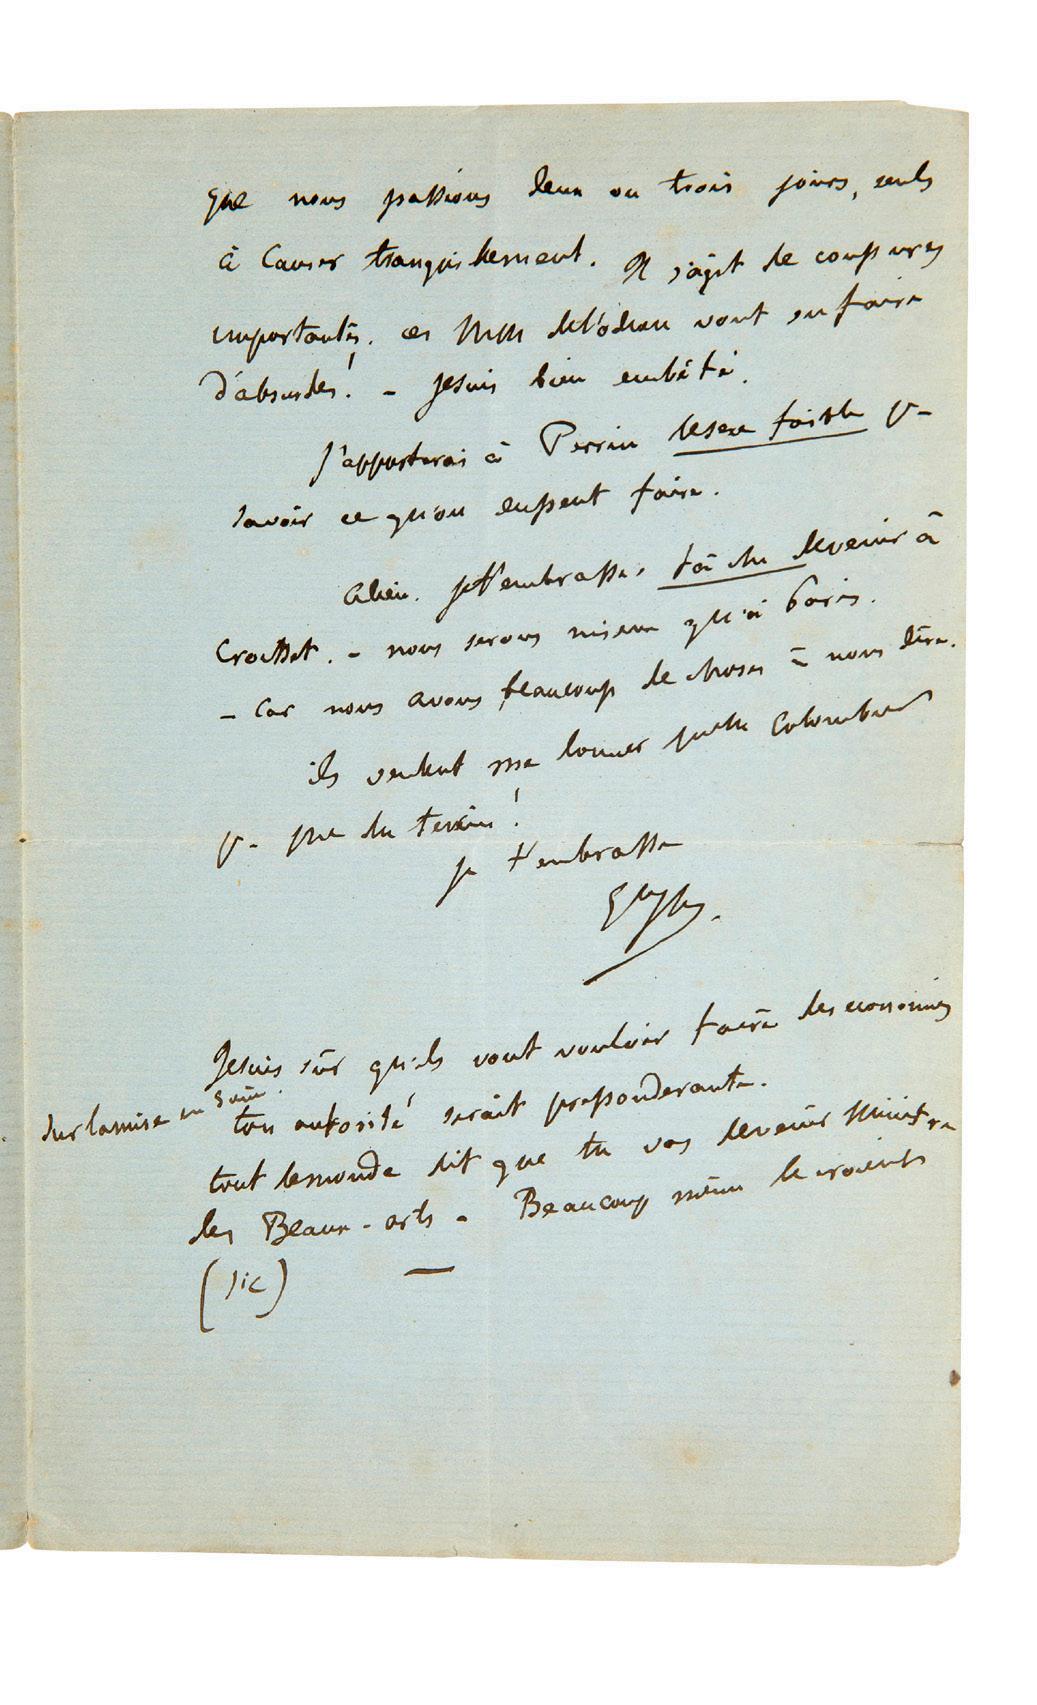 que nous passions deux ou trois jours, seuls
à causer tranquillement. Il s'agit de coupures
importantes. ces MM de l'odeon vont en faire
d'absurdes! – je suis bien embêté.
J'apporterai à Perrin le sexe faible pr
savoir ce qu'on en peut faire.
Adieu. je t'embrasse, tâche de venir à
Croisset. – nous serons mieux qu'à Paris.
– car nous avons beaucoup de choses à nous dire.
ils veulent me donner pour colombier
pr du terrain!
je t'embrasse
Je suis sûr qu'ils vont vouloir faire des economies
sur la mise en Scène
ton autorité serait preponderante.
tout le monde dit que tu vas devenir Ministre
des Beaux-arts – Beaucoup même le croient
(sic) —